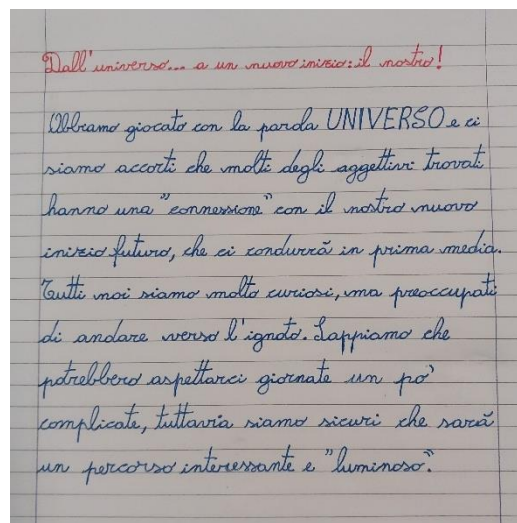 Dall'universo... a un nuovo inizio: il nostro!
Abbiamo giocato con la parola UNIVERSO e ci
siamo accorti che molti degli aggettivi trovati
hanno una "connessione" con il nostro nuovo
inizio futuro, che ci condurrà in prima media.
Tutti noi siamo molto curiosi, ma preoccupati
di andare verso l'ignoto. Sappiamo che
potrebbero aspettarci giornate un po'
complicate, tuttavia siamo sicuri che sarà
un percorso interessante e "luminoso".